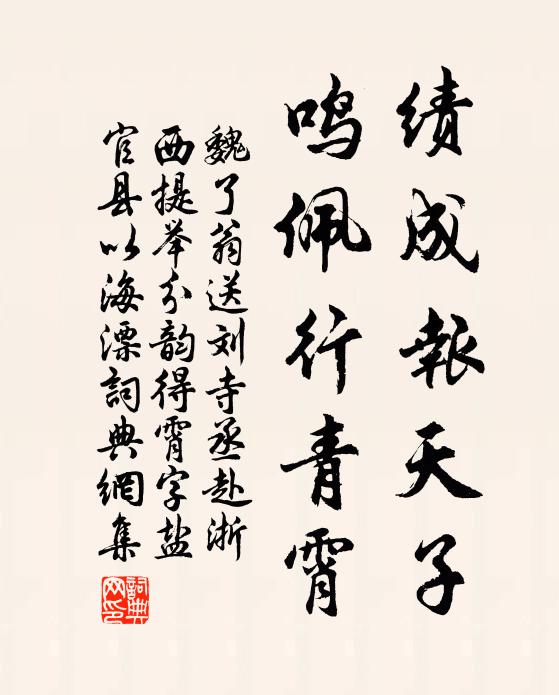 绩成報天子
鸣佩行青霄
魏了翁送刘寺丞赴浙
西提举分韵得霄字盐
官县以海溧詞典網集
詞典
网印